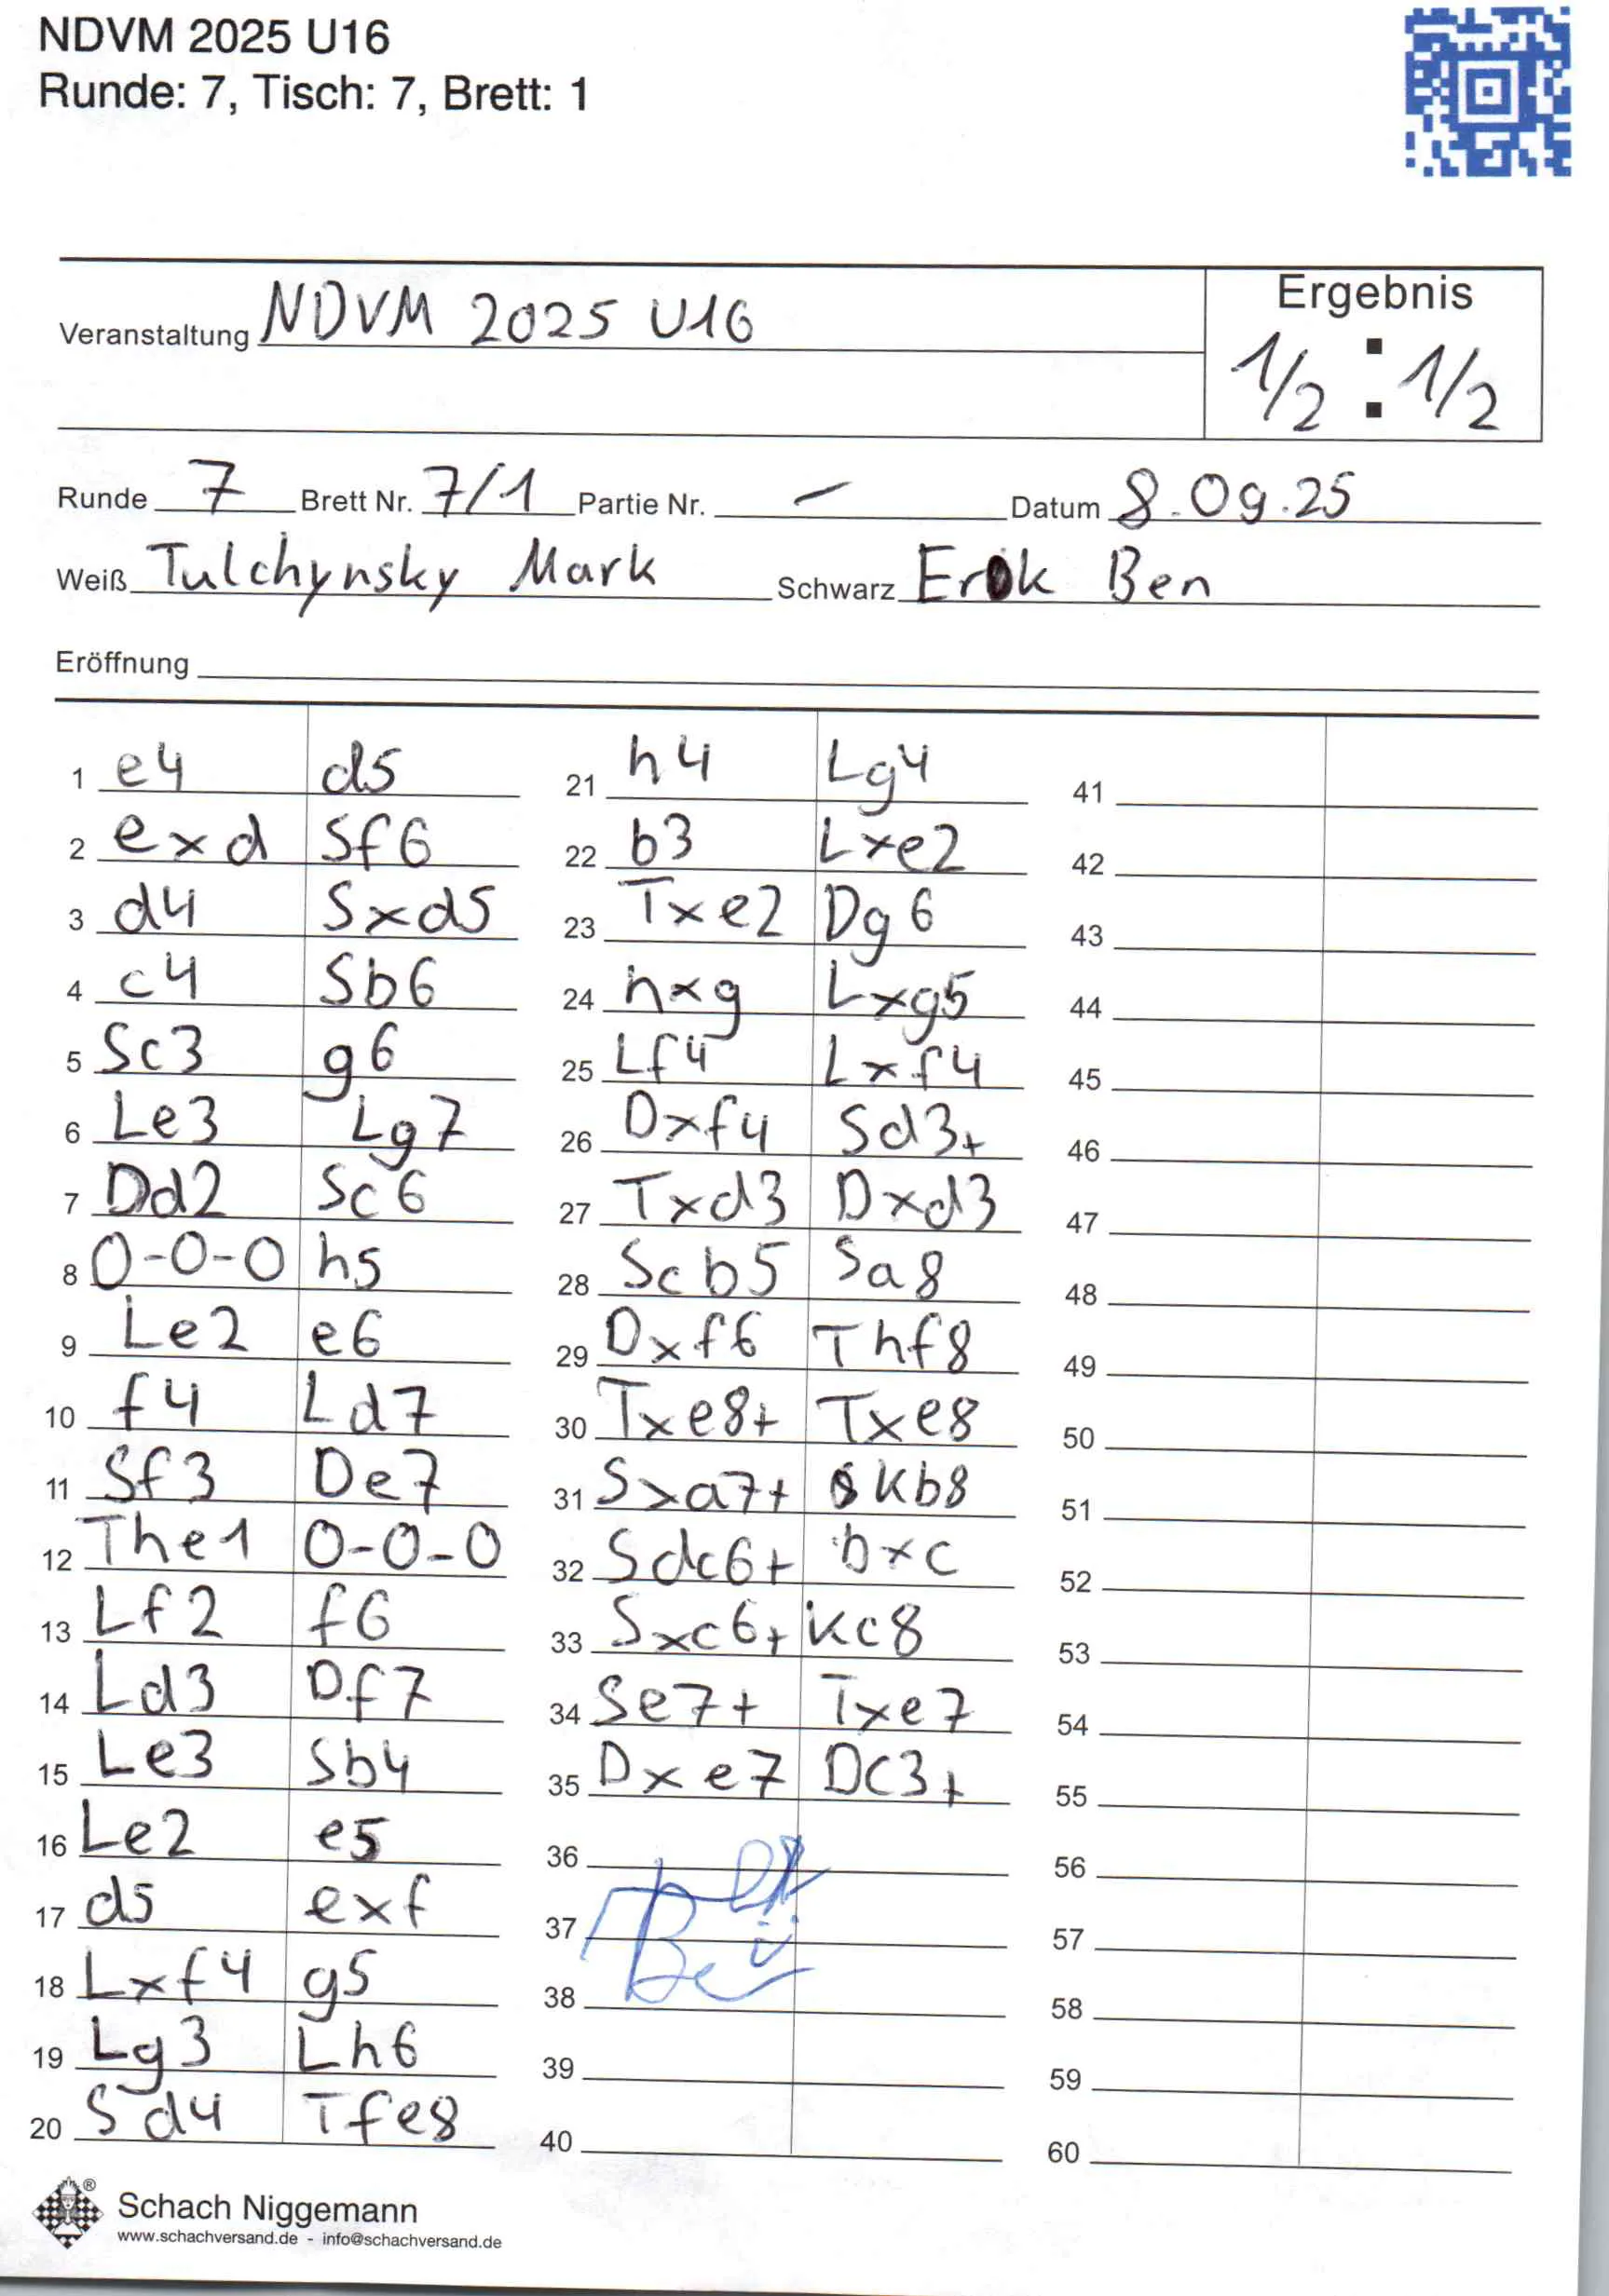 NDVM 2025 U16
Runde: 7, Tisch: 7, Brett: 1
Veranstaltung NDVM 2025 U16
Ergebnis
1/2 : 1/2
Runde 7 Brett Nr. 7/1 Partie Nr. – Datum 8.09.25
Weiß Tulchynsky Mark Schwarz Erok Ben
Eröffnung
1 e4 d5
2 exd Sf6
3 d4 Sxd5
4 c4 Sb6
5 Sc3 g6
6 Le3 Lg7
7 Dd2 Sc6
8 0-0-0 h5
9 Le2 e6
10 f4 Ld7
11 Sf3 De7
12 The1 0-0-0
13 Lf2 f6
14 Ld3 Df7
15 Le3 Sb4
16 Le2 e5
17 d5 exf
18 Lxf4 g5
19 Lg3 Lh6
20 Sd4 Tfe8
21 h4 Lg4
22 b3 Lxe2
23 Txe2 Dg6
24 hxg Lxg5
25 Lf4 Lxf4
26 Dxf4 Sd3+
27 Txd3 Dxd3
28 Scb5 Sa8
29 Dxf6 Thf8
30 Txe8+ Txe8
31 Sxa7+ Kb8
32 Sdc6+ bxc
33 Sxc6+ Kc8
34 Se7+ Txe7
35 Dxe7 Dc3+
36
37
38
39
40
41
42
43
44
45
46
47
48
49
50
51
52
53
54
55
56
57
58
59
60
Schach Niggemann
www.schachversand.de - info@schachversand.de